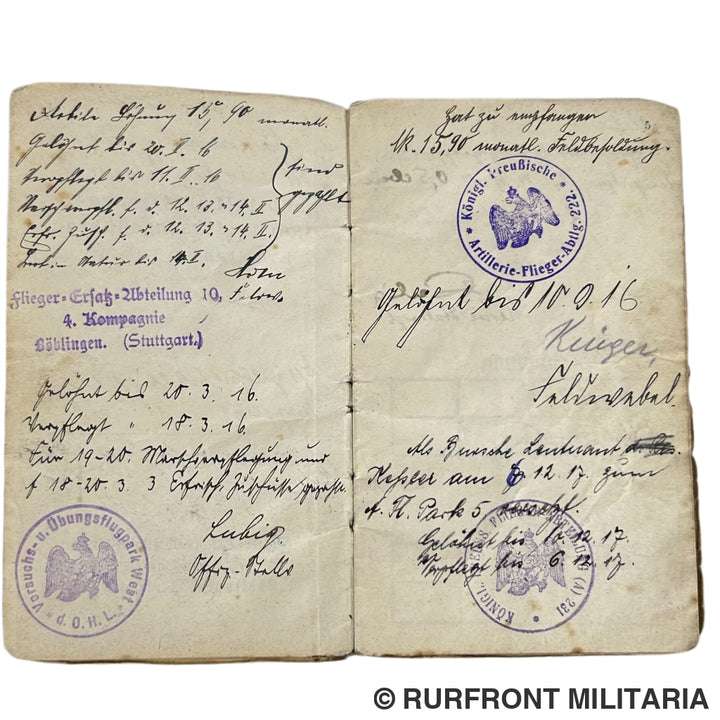 Mobile Löhnung 15,90 monatl.
Gelöhnt bis 20. II. 16
Verpflegt bis 11. II. 16
f. d. 12. 13. u. 14. II
sind
gezahlt
f. d. 12. 13. u. 14. II.
bis
Feldw.
Flieger-Ersatz-Abteilung 10,
4. Kompagnie
Böblingen. (Stuttgart.)
Gelöhnt bis 20. 3. 16.
Verpflegt " 18. 3. 16.
Für 19-20. Marschverpflegung und
f 18-20. 3. 3 Erfrisch. Zuschüsse gezahlt.
Offz. Stellv
Versuchs- u. Übungsflugpark West
* d. O. H. L. *
5
Hat zu empfangen
Mk. 15,90 monatl. Feldbesoldung.
* Königl. Preußische *
Artillerie-Flieger-Abtlg. 222.
Gelöhnt bis 10. 9. 16.
Krüger,
Feldwebel.
Als Bursche Leutnant
Kessler am 7. 12. 17. zum
A. Fl. Park 5, versetzt.
Gelöhnt bis 10. 12. 17.
Verpflegt bis 6. 12. 17.
KÖNIGL. PREUSS. FLIEGER-ABTEILUNG (A) 231
*
© RURFRONT MILITARIA